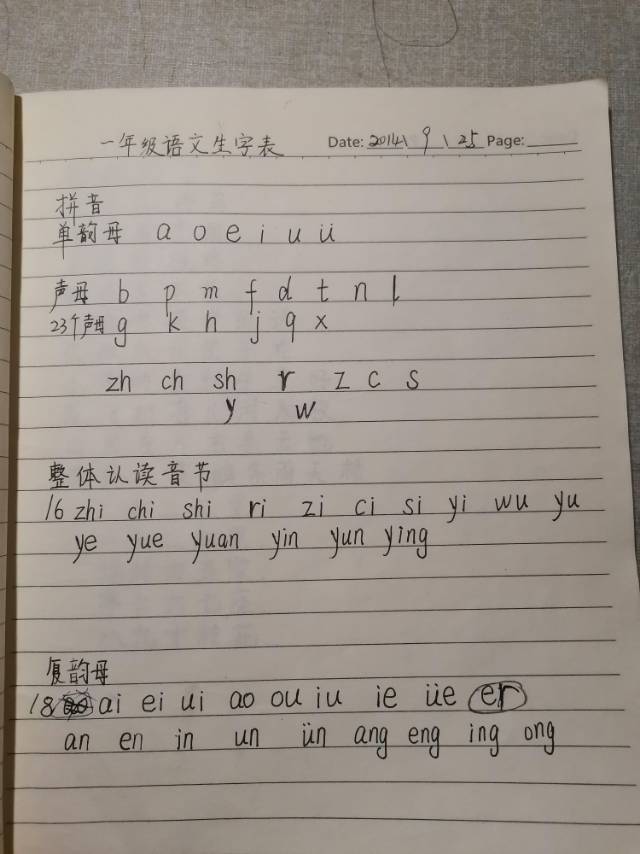 一年级语文生字表 Date: 2014\ 9 \ 25 Page:
拼音
单韵母 a o e i u ü
声母 b p m f d t n l
23个声母 g k h j q x
zh ch sh r z c s
y w
整体认读音节
16 zhi chi shi ri zi ci si yi wu yu
ye yue yuan yin yun ying
复韵母
18 ai ei ui ao ou iu ie üe er
an en in un ün ang eng ing ong